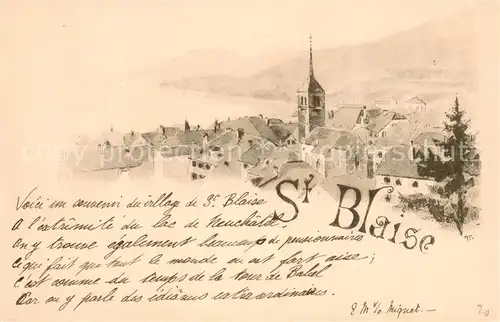 St Blaise
Voici un souvenir du village de St Blaise
A l'extrêmité du lac de Neuchâtel.
On y trouve également beaucoup de pensionnaires
Ce qui fait que tout le monde en est fort aise;
C'est comme du temps de la tour de Babel
Car on y parle des idiômes extraordinaires.
E. M.